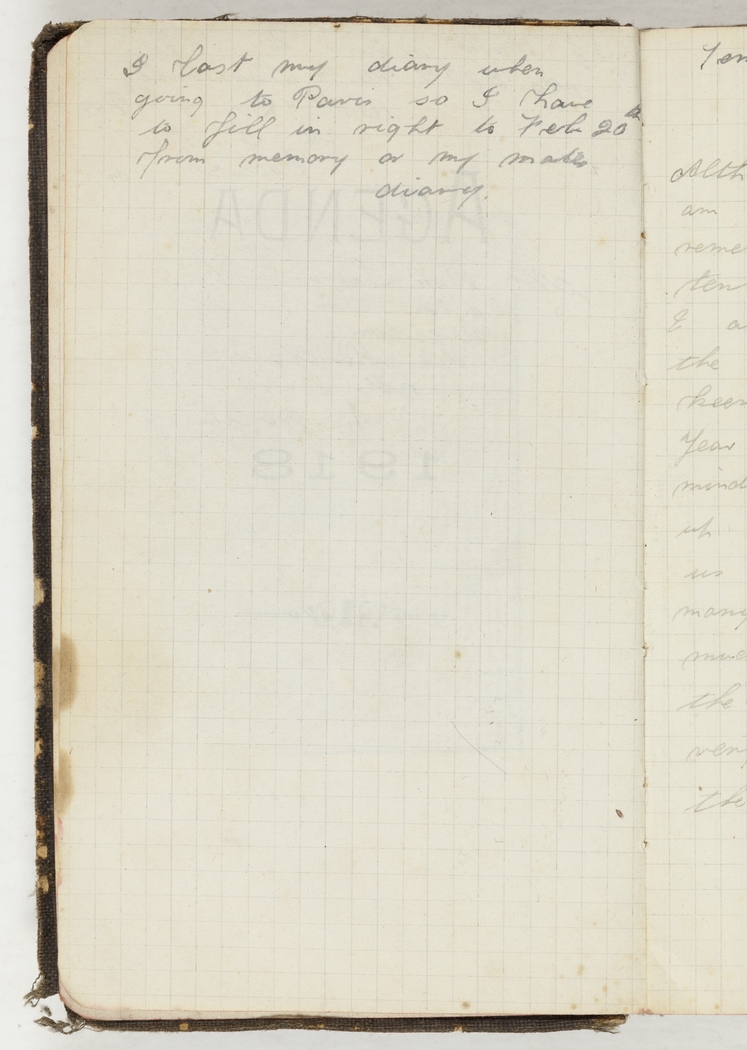 I lost my diary when
going to Paris so I have
to fill in right to Feb 20th
from memory or my mates
diary.
AGENDA
1918
Alth
am
reme
ten
I a
the
keen
Year
mind
up
us
many
muc
the
very
the